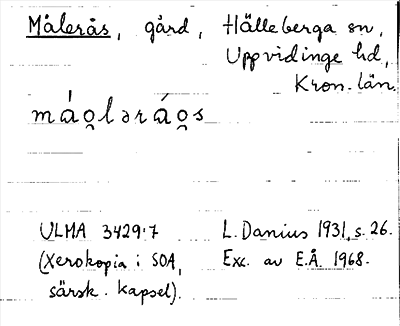 Målerås, gård, Hälleberga sn,
Uppvidinge hd,
Kron. län.
má̀o̯ləráo̯s
ULMA 3429:7
(Xerokopia i SOA,
särsk. kapsel).
L. Danius 1931, s. 26.
Exc. av E.Å. 1968.